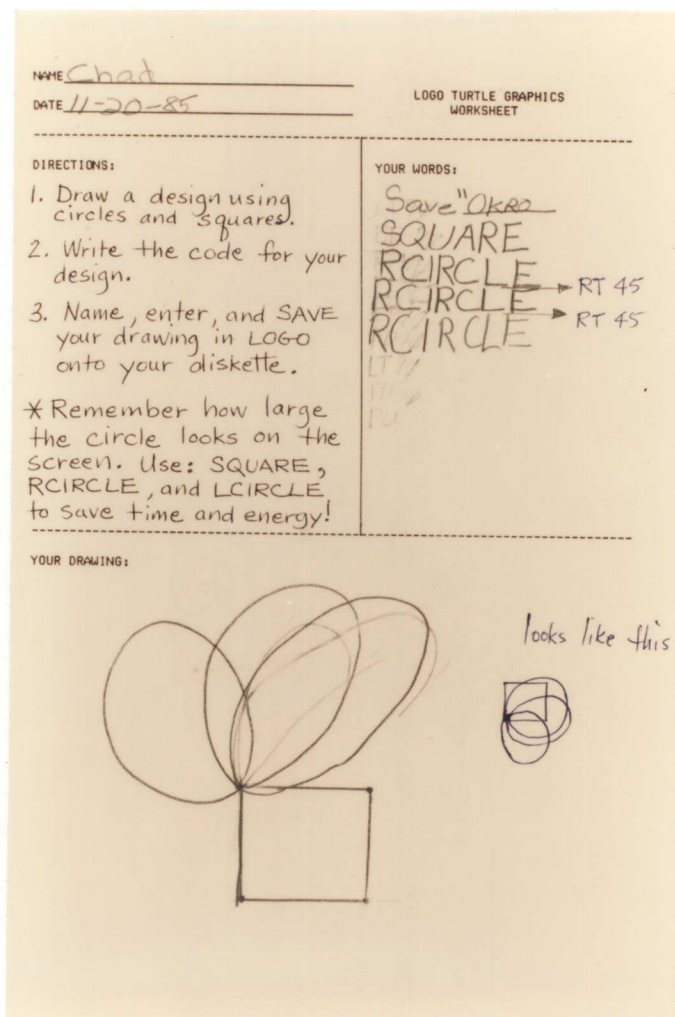 NAME Chad
DATE 11-20-85
LOGO TURTLE GRAPHICS
WORKSHEET
DIRECTIONS:
1. Draw a design using
circles and squares.
2. Write the code for your
design.
3. Name, enter, and SAVE
your drawing in LOGO
onto your diskette.
* Remember how large
the circle looks on the
screen. Use: SQUARE,
RCIRCLE, and LCIRCLE
to save time and energy!
YOUR WORDS:
Save "OKRO
SQUARE
RCIRCLE
RT 45
RCIRCLE
RT 45
RCIRCLE
LT
PU
YOUR DRAWING:
looks like this